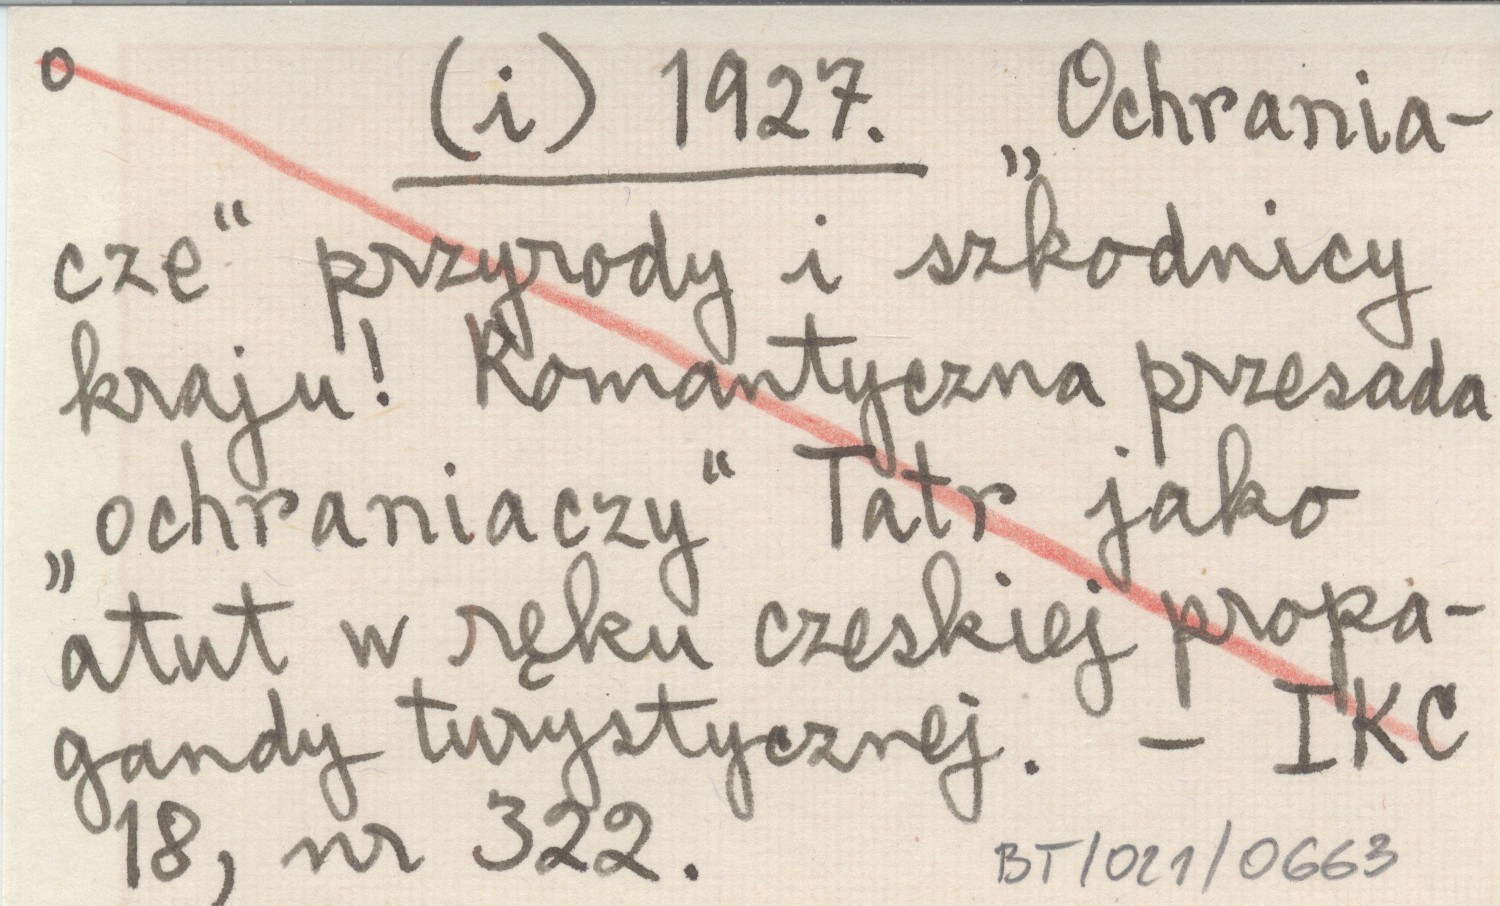 o (i) 1927. „Ochrania-
cze“ przyrody i szkodnicy
kraju! Romantyczna przesada
„ochraniaczy“ Tatr jako
atut w ręku czeskiej propa-
gandy turystycznej. – IKC
18, nr 322.
BT/021/0663